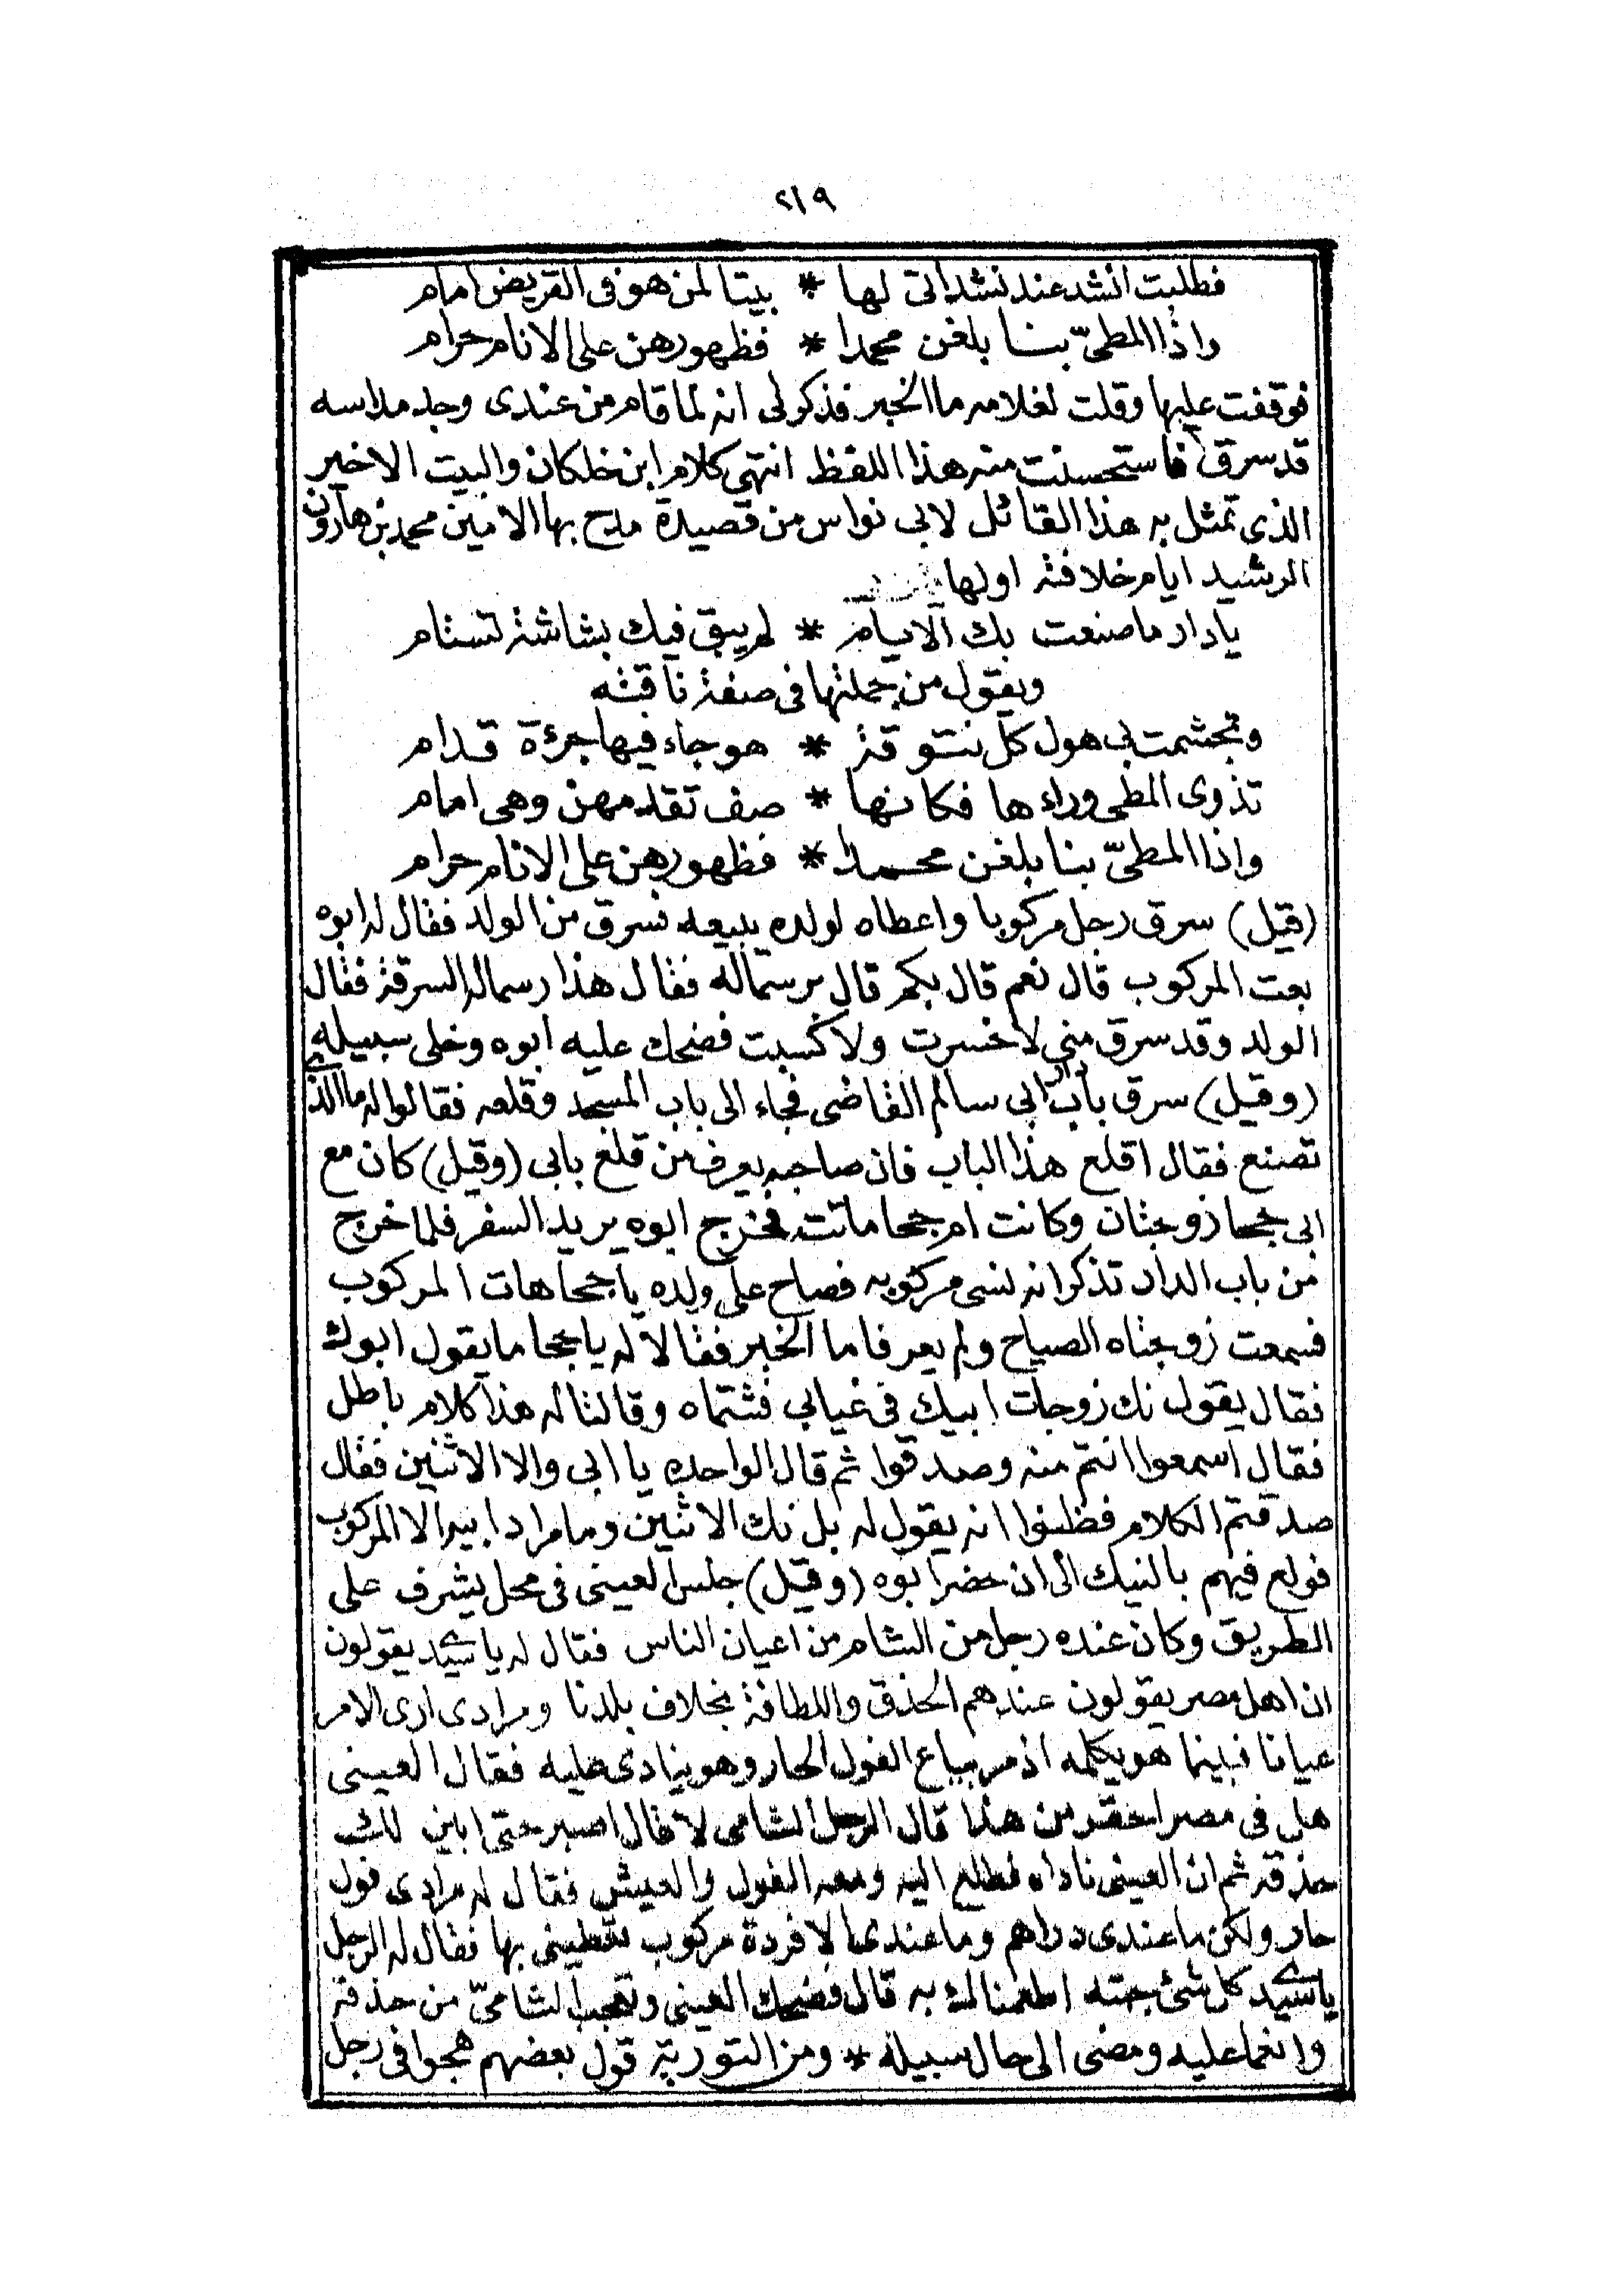 ٢١٩
فطلبت انشد عند نشداتى لها * بيتا لمن هو فى القريض امام
واذا المطىّ بنا بلغن محمدا * فظهورهن على الانام حرام
فوقفت عليها وقلت لغلامه ما الخبر فذكر لى انه لما قام من عندى وجد ملاسه
قد سرق فاستحسنت منه هذا اللفظ انتهى كلام ابن خلكان والبيت الاخير
الذى تمثل به هذا القائل لابى نواس من قصيدة مدح بها الامين محمد بن هارون
الرشيد ايام خلافته اولها
يا دار ما صنعت بك الايام * لم يبق فيك بشاشة تستام
ويقول من جملتها فى صفة ناقته
وتجشمت بى هول كل تنوفة * هوجاء فيها جرءة قدام
تذوى المطى وراءها فكانها * صف تقدمهن وهى امام
واذا المطىّ بنا بلغن محمدا * فظهورهن على الانام حرام
(قيل) سرق رجل مركوبا واعطاه لولده يبيعه فسرق من الولد فقال له ابوه
بعت المركوب قال نعم قال بكم قال برسماله فقال هذا رسماله السرقة فقال
الولد وقد سرق منى لا خسرت ولا كسبت فضحك عليه ابوه وخلى سبيله
(وقيل) سرق باب دار ابى سالم القاضى فجاء الى باب المسجد وقلعه فقالوا له ما الذى
تصنع فقال اقلع هذا الباب فان صاحبه يعرف من قلع بابى (وقيل) كان مع
ابى جحا زوجتان وكانت ام جحا ماتت فخرج ابوه يريد السفر فلما خرج
من باب الدار تذكر انه نسى مركوبه فصاح على ولده يا جحا هات المركوب
فسمعت زوجتاه الصياح ولم يعرفا ما الخبر فقالا له يا جحا ما يقول ابوك
فقال يقول نك زوجات ابيك فى غيابى فشتماه وقالتا له هذا كلام باطل
فقال اسمعوا انتم منه وصدقوا ثم قال الواحده يا ابى والا الاثنين فقال
صدقتم الكلام فظنوا انه يقول له بل نك الاثنين وما مراد ابيه الا المركوب
فولع فيهم بالنيك الى ان حضر ابوه (وقيل) جلس العينى فى محل يشرف على
الطريق وكان عنده رجل من الشام من اعيان الناس فقال له يا سيدى يقولون
ان اهل مصر يقولون عندهم الحذق واللطافة بخلاف بلدنا ومرادى ارى الامر
عيانا فبينما هو يكلمه اذ مر بياع الفول الحار وهو ينادى عليه فقال العينى
هل فى مصر احقر من هذا قال الرجل الشامى لا قال اصبر حتى ابين لك
حذقه ثم ان العينى ناداه فطلع اليه ومعه الفول والعيش فقال له مرادى فول
حار ولكن ما عندى دراهم وما عندى الا فردة مركوب تعطينى بها فقال له الرجل
يا سيدى كل شئ جبته اطعمنا لك به قال فضحك العينى وتعجب الشامىّ من حذقه
وانعما عليه ومضى الى حال سبيله * ومن التورية قول بعضهم هجوا فى رجل